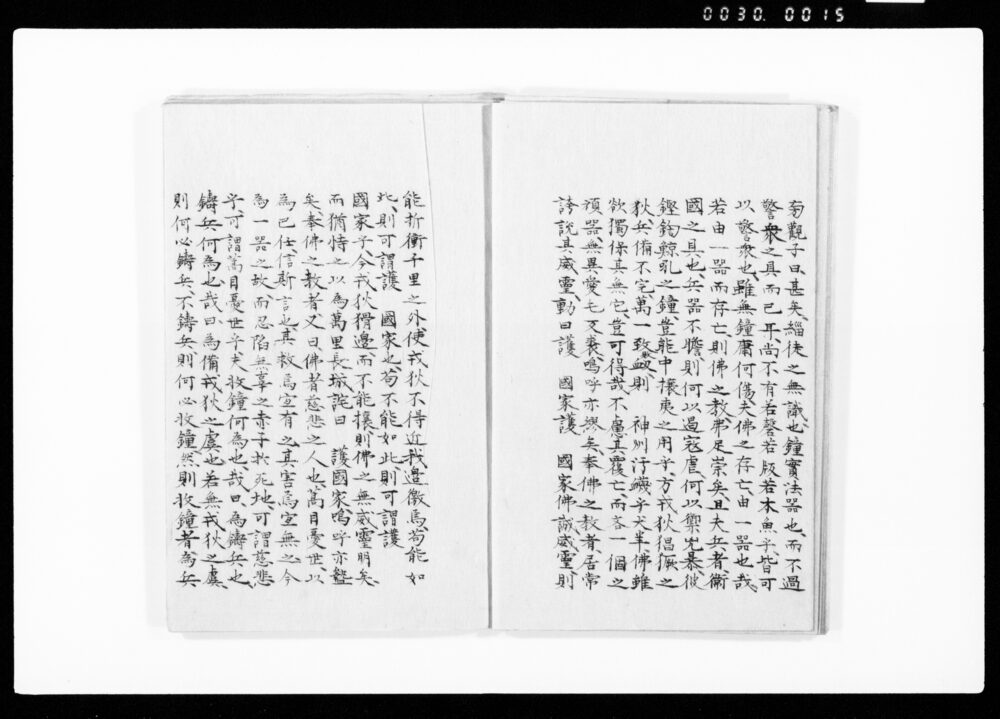 0030.0015
旁觀子曰甚矣緇徒之無識也鐘實法器也而不過
警衆之具而已耳尚不有若磬若版若木魚乎皆可
以警衆也雖無鐘庸何傷夫佛之存亡由一器也哉
若由一器而存亡則佛之教弗足崇矣且夫兵者衛
國之具也兵器不贍則何以遏寇虐何以禦兇暴彼
鏗鍧鯨吼之鐘豈能中攘夷之用乎方戎狄猖獗之
秋兵備不完萬一致衂則　神州汙衊乎犬羊佛雖
欲獨保其無它豈可得哉不慮其覆亡而吝一個之
頑器無異愛毛反裘嗚呼亦謬矣奉佛之教者居常
誇說其威靈動曰護　國家護　國家佛誠威靈則
能折衝千里之外使戎狄不得近我邊徼焉苟能如
此則可謂護　國家也苟不能如此則可謂護
國家乎今戎狄猾邊而不能攘則佛之無威靈明矣
而猶恃之以為萬里長城詫曰　護國家嗚呼亦
矣奉佛之教者又曰佛者慈悲之人也蒿目憂世以
為己任信斯言也其救焉宜有之其害焉宜無之今
為一器之故而忍陷無辜之赤子於死地可謂慈悲
乎可謂蒿目憂世乎夫收鐘何為也哉曰為鑄兵也
鑄兵何為也哉曰為備戎狄之虞也若無戎狄之虞
則何必鑄兵不鑄兵則何必收鐘然則收鐘者為兵